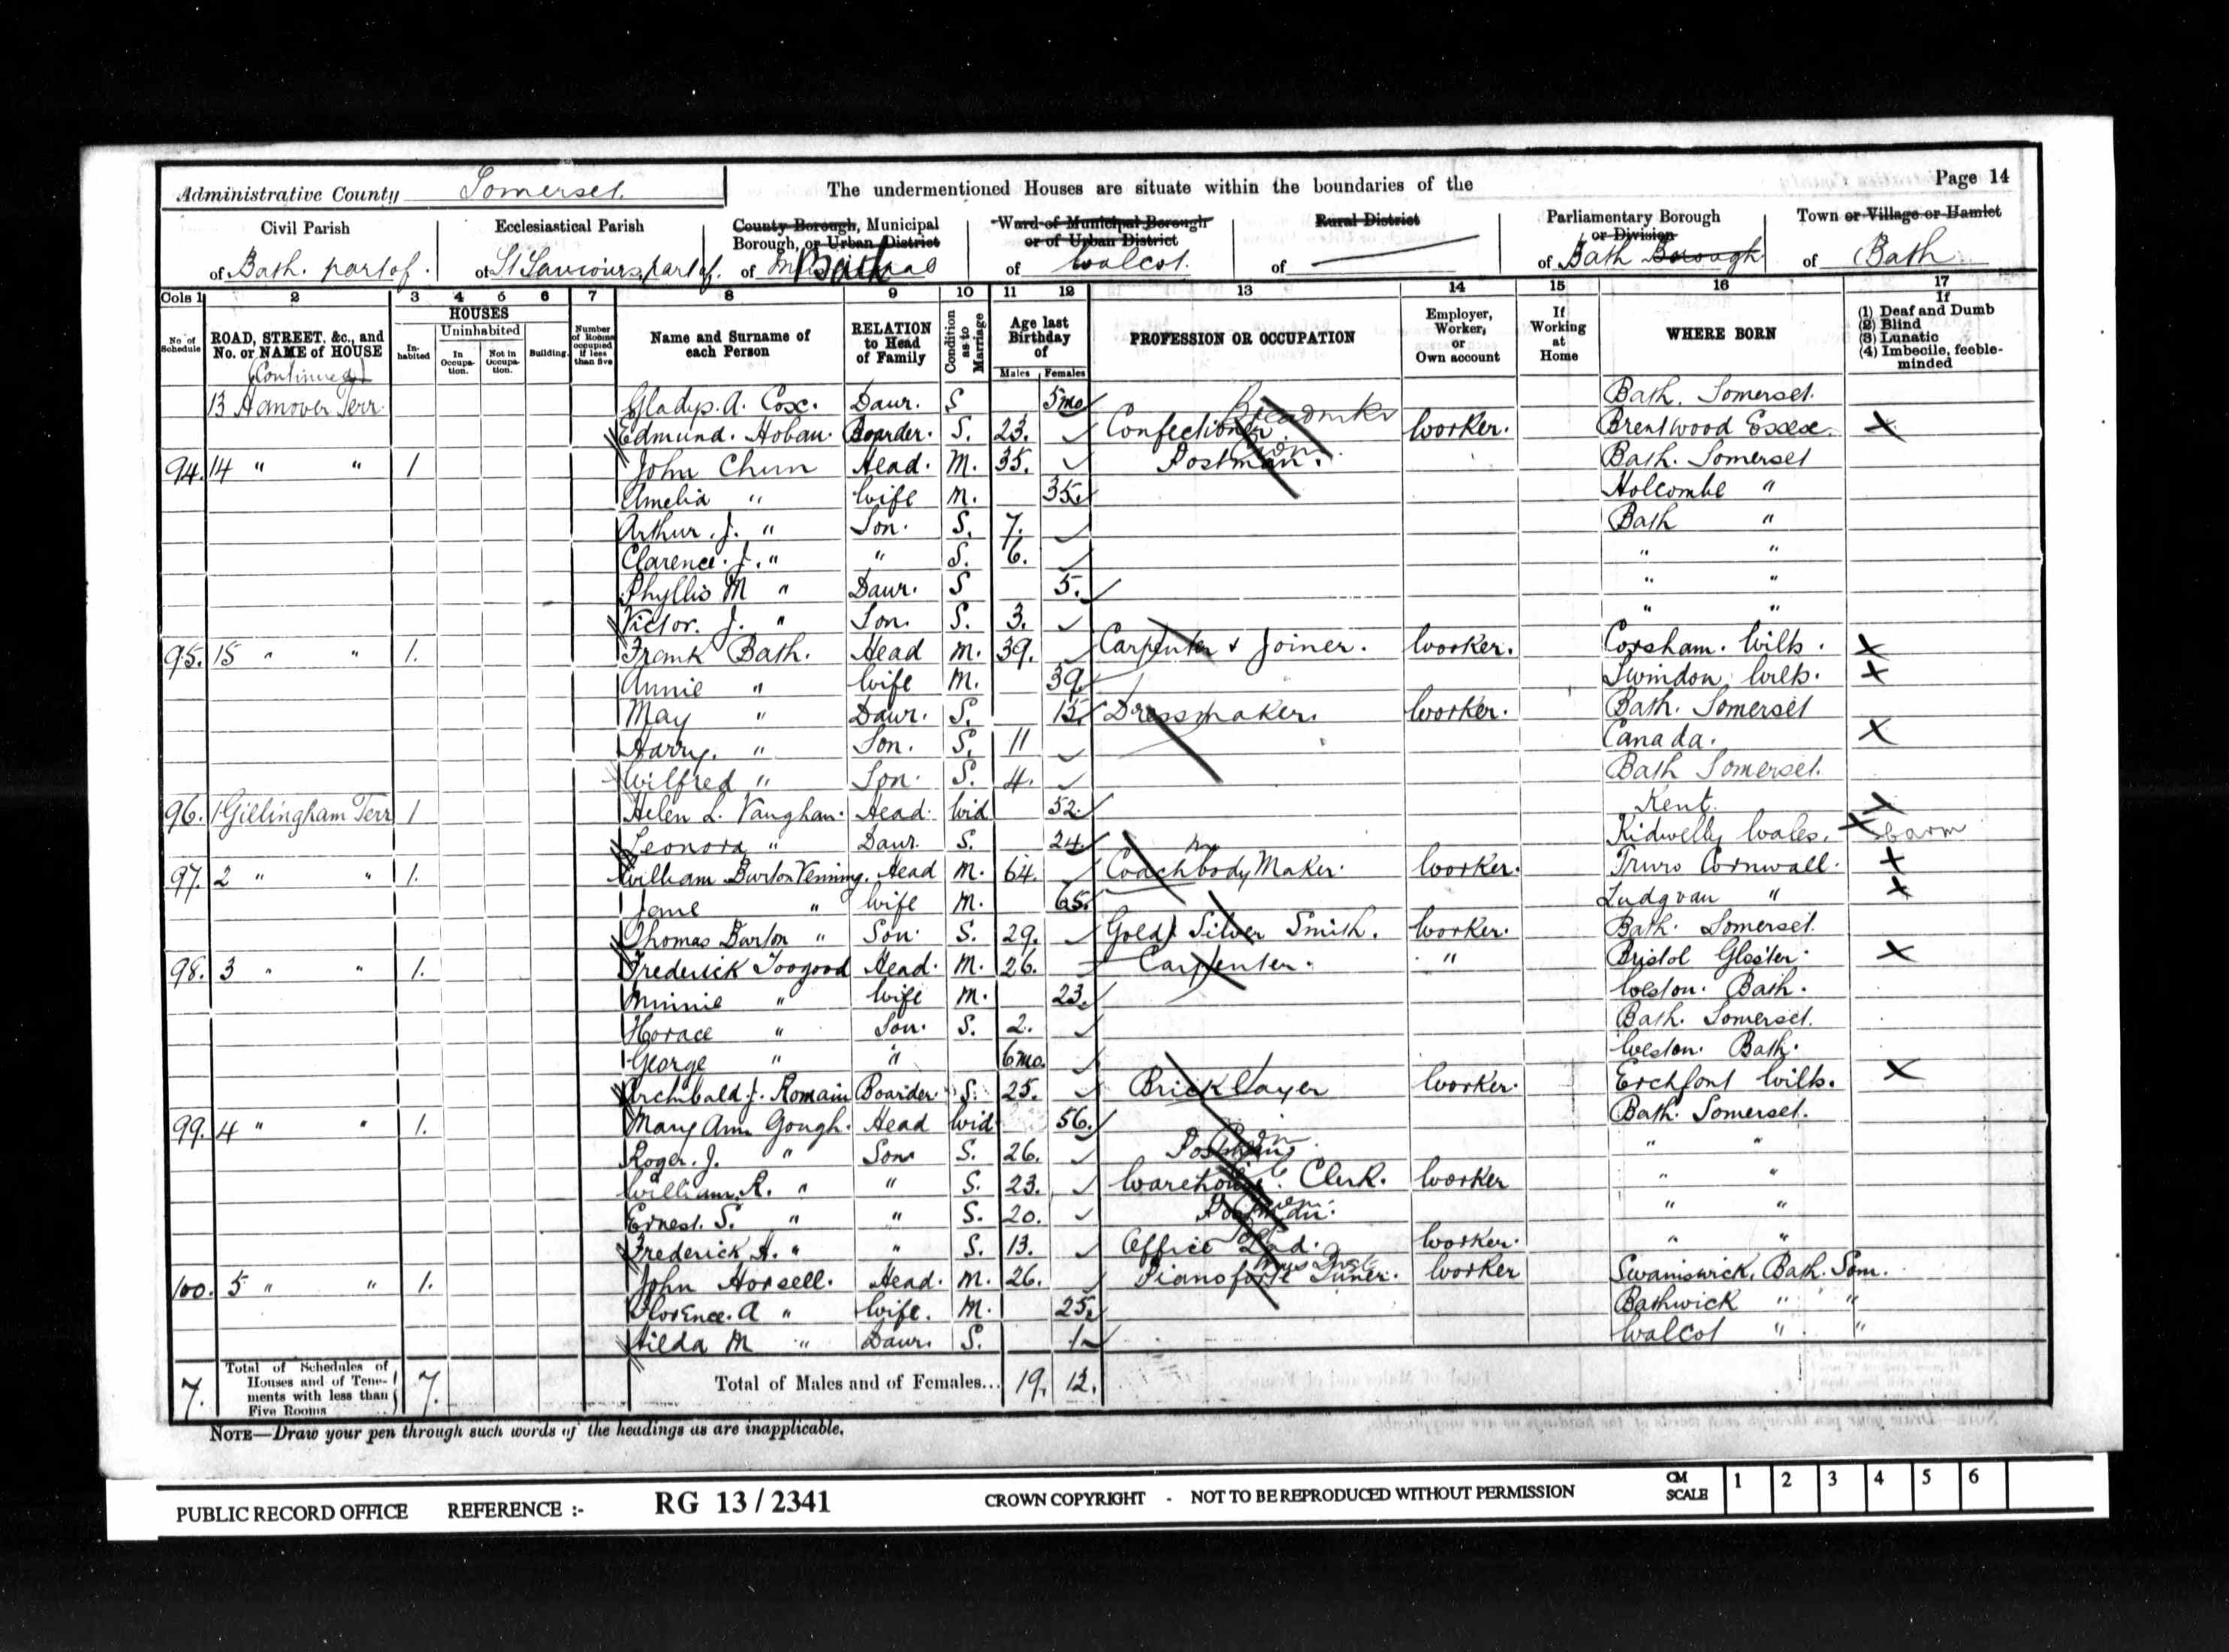 Page 14
Administrative County Somerset. The undermentioned Houses are situate within the boundaries of the
Civil Parish Ecclesiastical Parish County Borough, Municipal Borough, or Urban District Ward of Municipal Borough or of Urban District Rural District Parliamentary Borough or Division Town or Village or Hamlet
of Bath. part of. of St Saviours, part of. of Bath of Walcot. of of Bath Borough of Bath
Cols 1 2 3 4 5 6 7 8 9 10 11 12 13 14 15 16 17
No of Schedule ROAD, STREET, &c., and No. or NAME of HOUSE HOUSES In-habited Uninhabited In Occupa-tion. Not in Occupa-tion. Building. Number of Rooms occupied if less than five Name and Surname of each Person RELATION to Head of Family Condition as to Marriage Age last Birthday of Males Females PROFESSION OR OCCUPATION Employer, Worker, or Own account If Working at Home WHERE BORN If (1) Deaf and Dumb (2) Blind (3) Lunatic (4) Imbecile, feeble-minded
(Continued)
13 Hanover Terr. Gladys. A. Cox. Daur. S 5mo Bath. Somerset.
Edmund. Hoban. Boarder. S. 23. Confectioner. Breadmkr Worker. Brentwood Essex. X
94. 14 " " 1 John Chun Head. M. 35. Postman. Bath. Somerset
Amelia " Wife M. 35. Holcombe "
Arthur. J. " Son. S. 7. Bath "
Clarence. J. " " S. 6. " "
Phyllis M " Daur. S 5. " "
Victor. J. " Son. S. 3. " "
95. 15 " " 1. Frank Bath. Head M. 39. Carpenter & Joiner. Worker. Corsham. Wilts. X
Annie " Wife M. 39 Swindon. Wilts. X
May " Daur. S. 15 Dressmaker. Worker. Bath. Somerset
Harry. " Son. S. 11 Canada. X
Wilfred " Son. S. 4. Bath Somerset.
96. 1 Gillingham Terr 1 Helen L. Vaughan. Head. Wid 52. Kent. X
Leonora " Daur S. 24. Kidwelly Wales. X Carm
97. 2 " " 1. William Burton Venning. Head M. 64. Coach body Maker. Worker. Truro Cornwall. X
Jane " Wife M. 65. Ludgvan " X
Thomas Burton " Son. S. 29. Gold & Silver Smith. Worker. Bath. Somerset.
98. 3 " " 1. Frederick Toogood Head. M. 26. Carpenter. " Bristol Gloster. X
Minnie " Wife M. 23. Weston. Bath.
Horace " Son. S. 2. Bath. Somerset.
George " " 6mo. Weston. Bath.
Archibald. J. Romain Boarder S. 25. Bricklayer Worker. Erchfont Wilts. X
99. 4 " " 1. Mary Ann Gough. Head Wid 56. Bath. Somerset.
Roger. J. " Son S. 26. Postman " "
William. R. " " S. 23. Warehouse Clerk. Worker " "
Ernest. S. " " S. 20. Postman. " "
Frederick H. " " S. 13. Office Lad. Worker. " "
100. 5 " " 1. John Horsell. Head. M. 26. Pianoforte Tuner. Worker Swainswick, Bath. Som.
Florence. A " Wife. M. 25. Bathwick " "
Hilda M " Daur. S. 1 Walcot " "
7. Total of Schedules of Houses and of Tene-ments with less than Five Rooms 7. Total of Males and of Females... 19. 12.
NOTE—Draw your pen through such words of the headings as are inapplicable.
PUBLIC RECORD OFFICE REFERENCE :- RG 13 / 2341 CROWN COPYRIGHT - NOT TO BE REPRODUCED WITHOUT PERMISSION CM SCALE 1 2 3 4 5 6